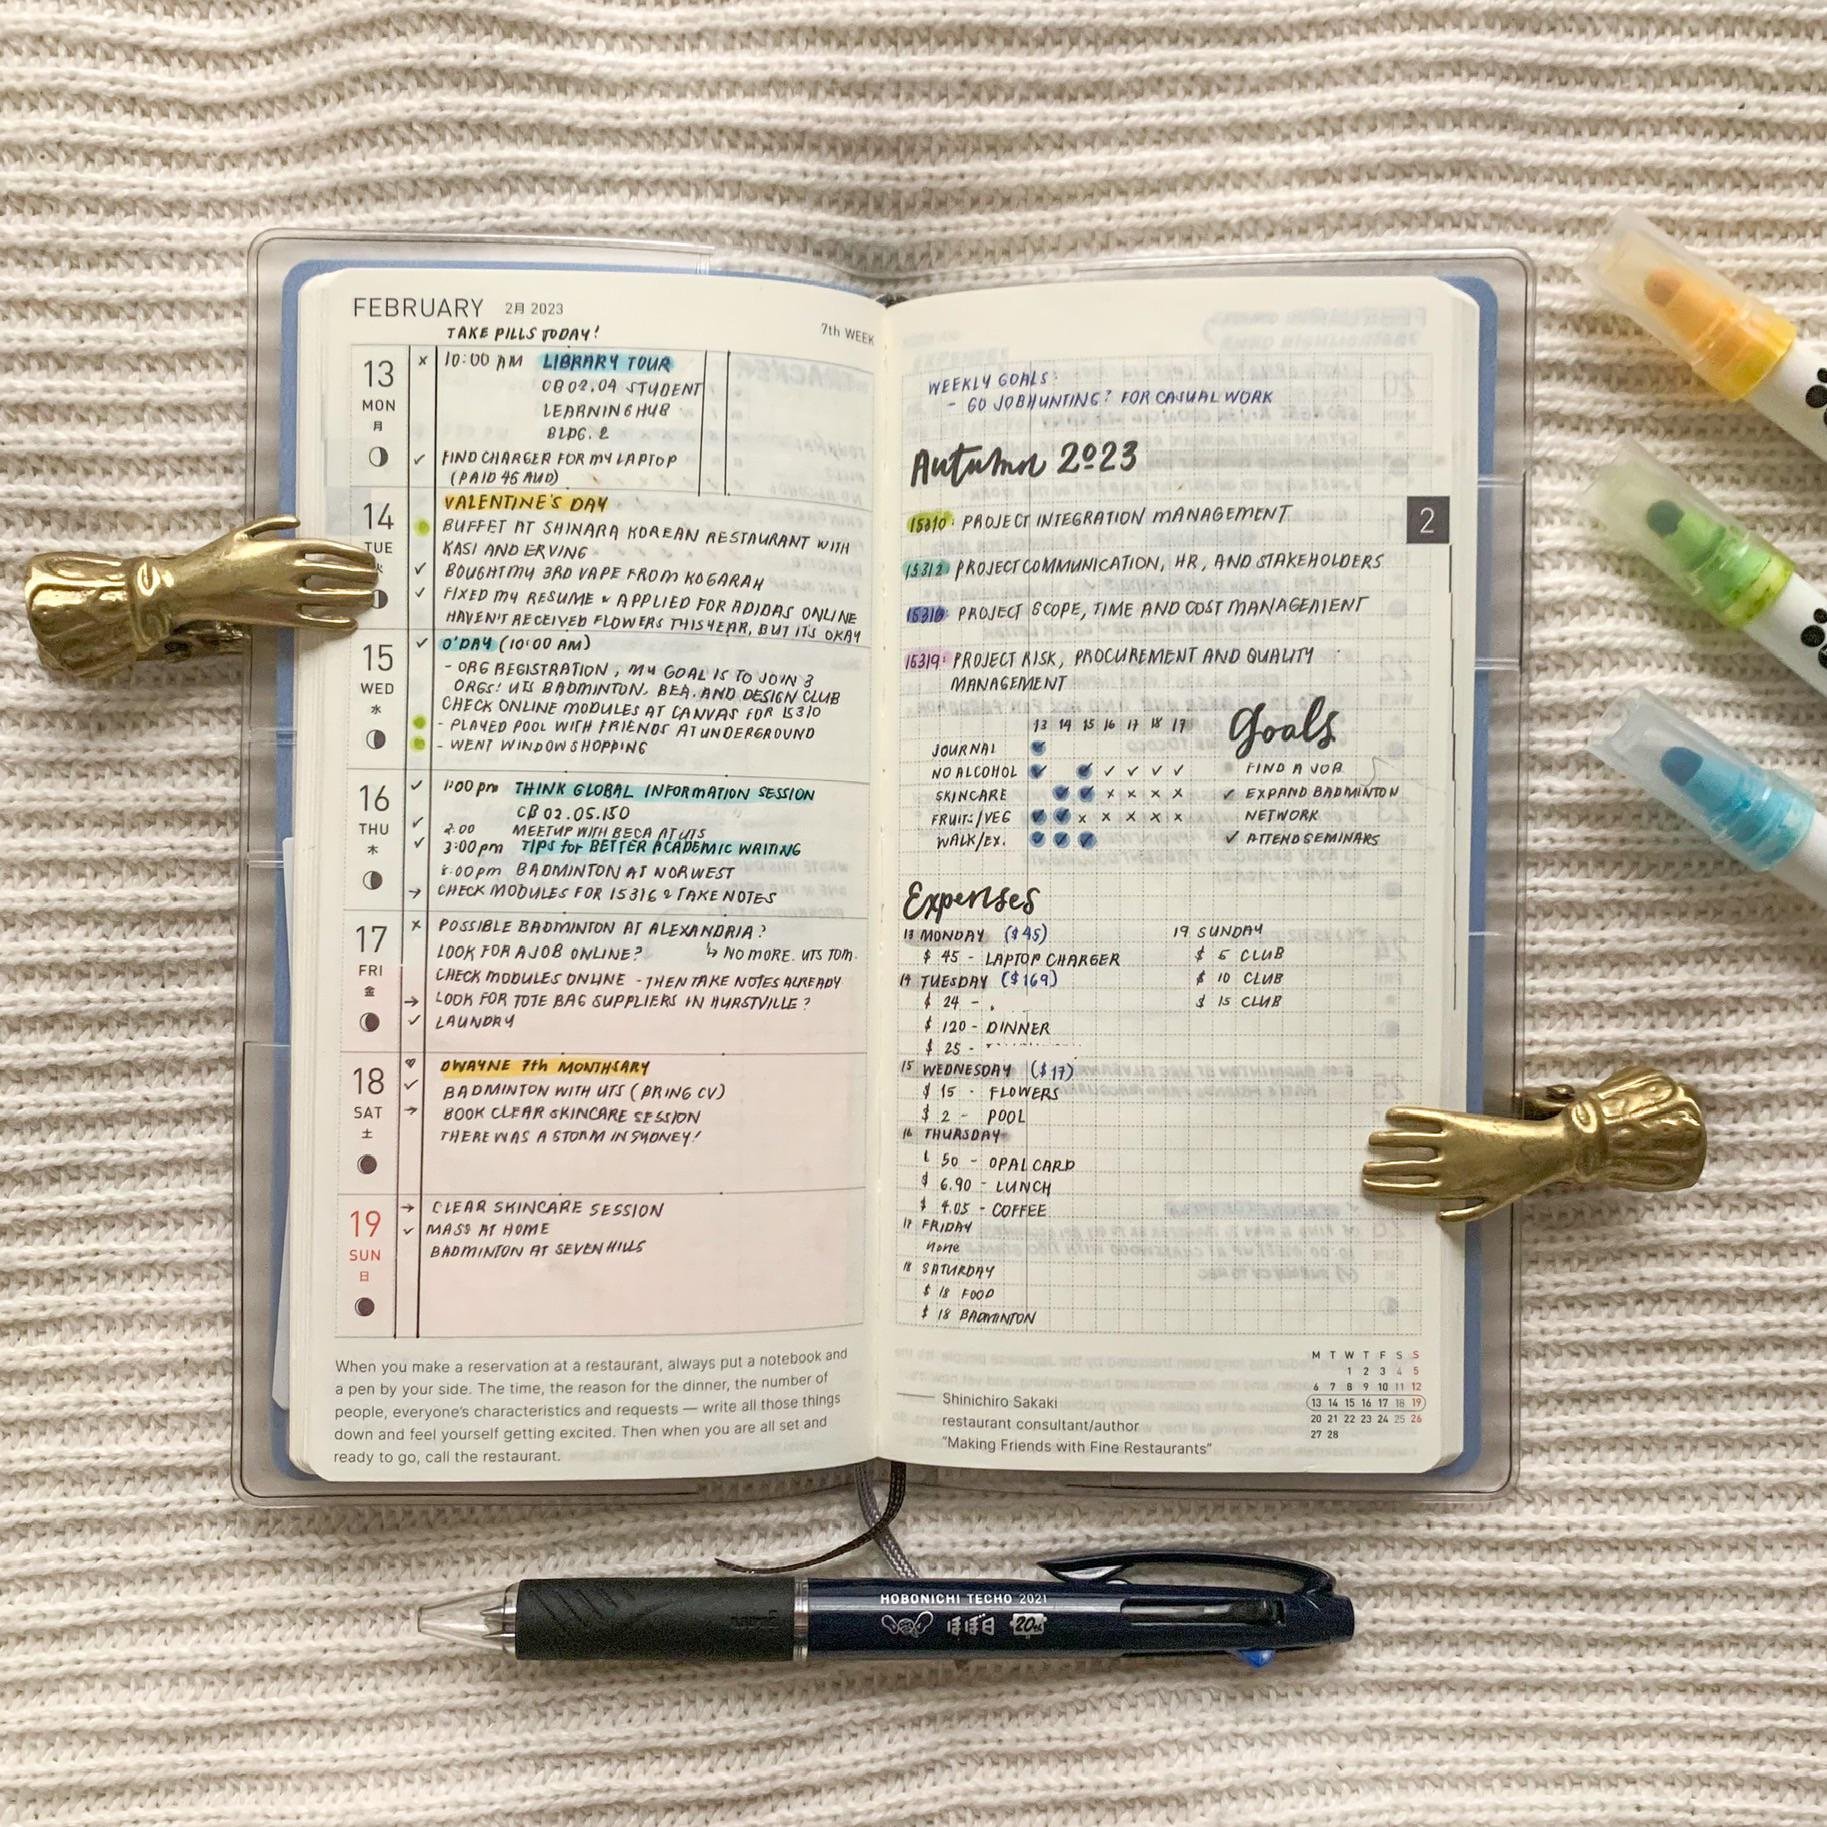 FEBRUARY 2月 2023
TAKE PILLS TODAY!
7th WEEK
13
MON
月
x 10:00 AM LIBRARY TOUR
CB02.04 STUDENT
LEARNING HUB
BLDG. 2
✓ FIND CHARGER FOR MY LAPTOP
(PAID 45 AUD)
14
TUE
VALENTINE'S DAY
BUFFET AT SHINARA KOREAN RESTAURANT WITH
KASI AND ERVING
✓ BOUGHT MY 3RD VAPE FROM KOGARAH
✓ FIXED MY RESUME & APPLIED FOR ADIDAS ONLINE
HAVEN'T RECEIVED FLOWERS THIS YEAR, BUT IT'S OKAY
15
WED
水
✓ O'DAY (10:00 AM)
- ORG REGISTRATION, MY GOAL IS TO JOIN 3
ORGS: UTS BADMINTON, BEA, AND DESIGN CLUB
CHECK ONLINE MODULES AT CANVAS FOR 15310
- PLAYED POOL WITH FRIENDS AT UNDERGROUND
- WENT WINDOW SHOPPING
16
THU
木
✓ 1:00 pm THINK GLOBAL INFORMATION SESSION
CB 02.05.150
✓ 2:00 MEETUP WITH BECA AT UTS
✓ 3:00 pm TIPS for BETTER ACADEMIC WRITING
8:00 pm BADMINTON AT NORWEST
→ CHECK MODULES FOR 15316 & TAKE NOTES
17
FRI
金
x POSSIBLE BADMINTON AT ALEXANDRIA?
LOOK FOR A JOB ONLINE? ↳ NO MORE. UTS TOM.
CHECK MODULES ONLINE - THEN TAKE NOTES ALREADY
→ LOOK FOR TOTE BAG SUPPLIERS IN HURSTVILLE?
✓ LAUNDRY
18
SAT
土
♡ DWAYNE 7th MONTHSARY
✓ BADMINTON WITH UTS (BRING CV)
→ BOOK CLEAR SKINCARE SESSION
THERE WAS A STORM IN SYDNEY!
19
SUN
日
→ CLEAR SKINCARE SESSION
✓ MASS AT HOME
BADMINTON AT SEVEN HILLS
When you make a reservation at a restaurant, always put a notebook and
a pen by your side. The time, the reason for the dinner, the number of
people, everyone's characteristics and requests — write all those things
down and feel yourself getting excited. Then when you are all set and
ready to go, call the restaurant.
WEEKLY GOALS:
- GO JOBHUNTING? FOR CASUAL WORK
Autumn 2023
15310: PROJECT INTEGRATION MANAGEMENT
2
15312 PROJECT COMMUNICATION, HR, AND STAKEHOLDERS
15316: PROJECT SCOPE, TIME AND COST MANAGEMENT
15319: PROJECT RISK, PROCUREMENT AND QUALITY
MANAGEMENT
13 14 15 16 17 18 19
JOURNAL
NO ALCOHOL ✓ ✓ ✓ ✓
SKINCARE x x x x
FRUIT:/VEG x x x x x
WALK/EX.
Goals
FIND A JOB
✓ EXPAND BADMINTON
NETWORK
✓ ATTEND SEMINARS
Expenses
13 MONDAY ($45)
$ 45 - LAPTOP CHARGER
14 TUESDAY ($169)
$ 24 -
$ 120 - DINNER
$ 25 -
15 WEDNESDAY ($17)
$ 15 - FLOWERS
$ 2 - POOL
16 THURSDAY
50 - OPAL CARD
$ 6.90 - LUNCH
$ 4.05 - COFFEE
17 FRIDAY
none
18 SATURDAY
$ 18 FOOD
$ 18 BADMINTON
19 SUNDAY
$ 5 CLUB
$ 10 CLUB
$ 15 CLUB
Shinichiro Sakaki
restaurant consultant/author
"Making Friends with Fine Restaurants"
M T W T F S S
1 2 3 4 5
6 7 8 9 10 11 12
13 14 15 16 17 18 19
20 21 22 23 24 25 26
27 28
HOBONICHI TECHO 2021
ほぼ日 20th
uni